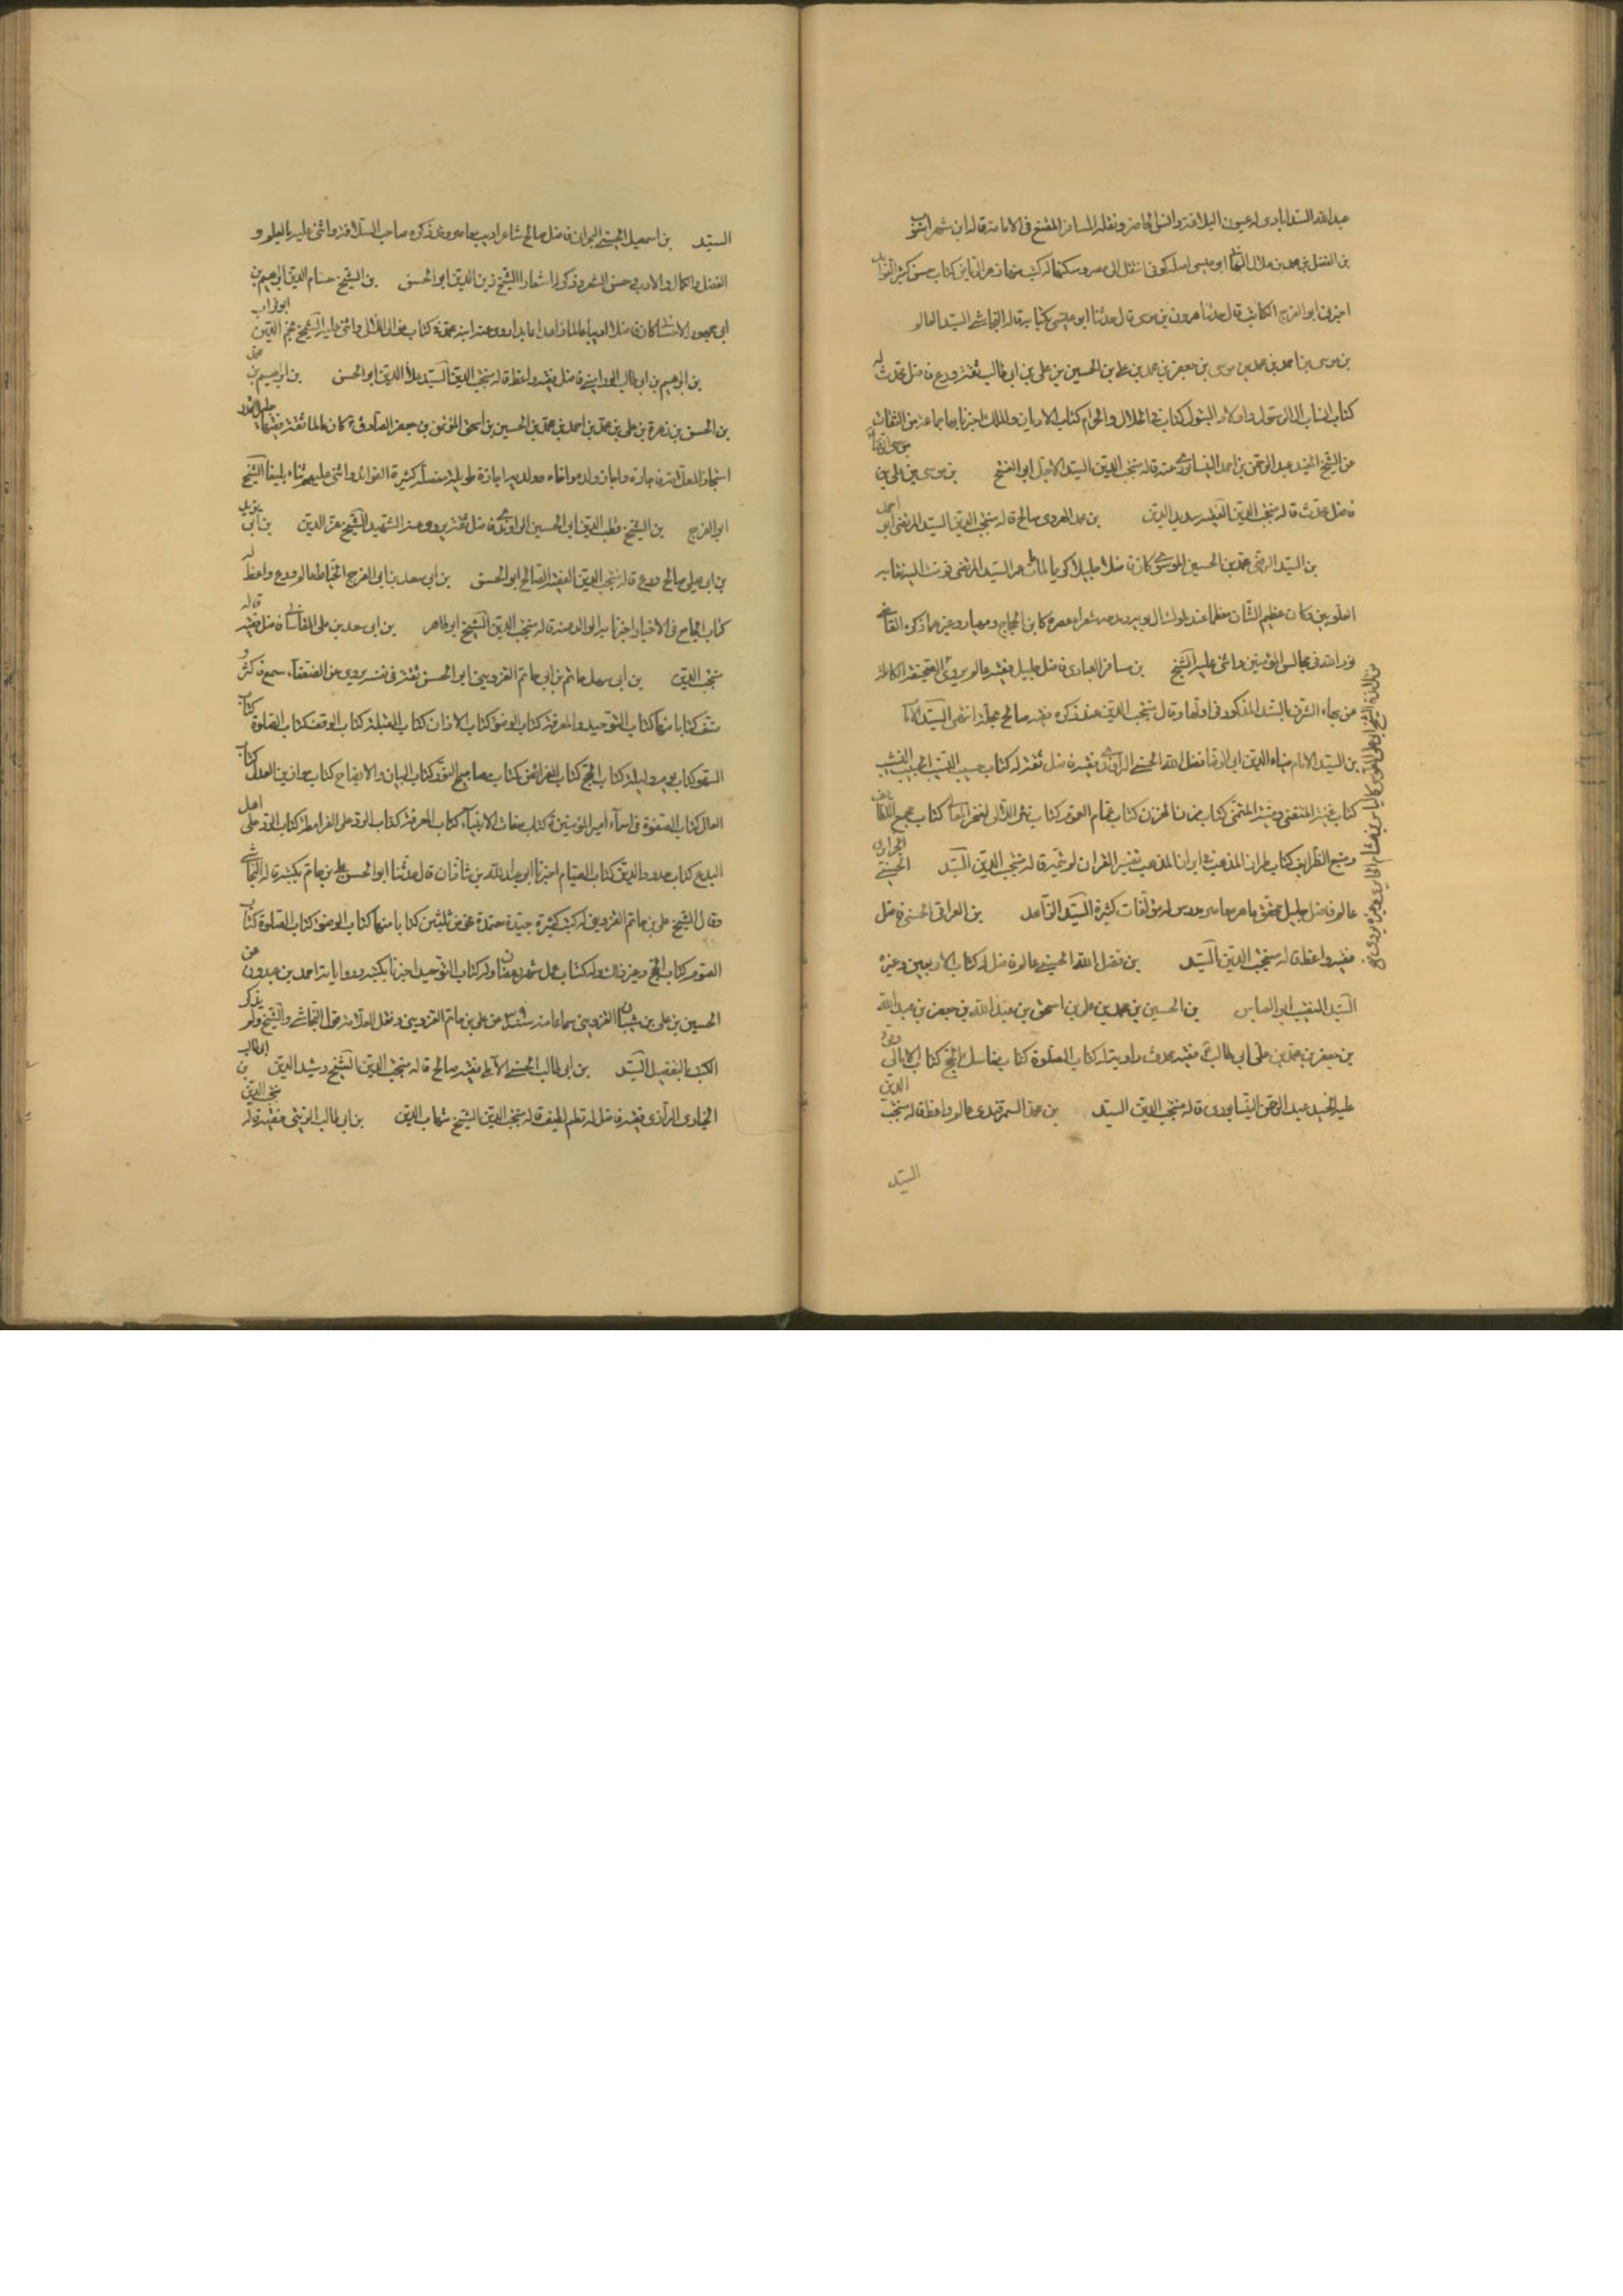 عبد الله السدابادى له عيون البلاغة وانس الحاضر ونقلة المسافر المقنع فى الامامة قاله ابن شهر آشوب
بن الفضل بن محمد بن هلال ابو عيسى اصله كوفى انتقل الى مصر وسكنها له كتب منها نوادر كتاب حسن كثير الفوايد
اخبرنى ابو الفرج الكاتب قال حدثنا هرون بن موسى قال حدثنا ابو عيسى بكتابه قاله النجاشى السيد العالم
بن موسى بن احمد بن محمد بن موسى بن جعفر بن محمد بن على بن الحسين بن على بن ابى طالب ثقة ورع فاضل محدث له
كتاب انساب آل الرسول واولاد البتول كتاب فى الحلال والحرام كتاب الاديان والملل اخبرنا بها جماعة من الثقات
عن الشيخ المفيد عبد الرحمن بن احمد النيسابورى عنه قاله منتجب الدين السيد الاجل ابو الفتح بن موسى بن على بن
فاضل محدث قاله منتجب الدين الفقيه سديد الدين بن محمد الهروى صالح قاله منتجب الدين السيد المرتضى ابو احمد
بن السيد الرضى محمد بن الحسين الموسوى كان فاضلا جليلا كريما لما مات عمه السيد المرتضى فوضت اليه نقابة
العلويين وكان عظيم الشان معظما عند ملوك ال بويه ومدحه شعراء عصره كابن الحجاج ومهيار وغيرهما ذكره القاضى
نور الله فى مجالس المؤمنين واثنى عليه الشيخ بن مسافر العبادى فاضل جليل فقيه عالم يروى الصحيفة الكاملة
عن بهاء الشرف بالسند المذكور فى اولها وقال منتجب الدين عند ذكره فقيه صالح انتهى السيد الامام
بن السيد الامام ضياء الدين ابى الرضا فضل الله الحسنى الراوندى فقيه فاضل ثقة له كتاب حسيب النسيب للحسيب النسيب
كتاب غنية المتغنى ومنية المتمنى كتاب مزن الحزن كتاب غمام الغموم كتاب نثر اللآلى لفخر المعالى كتاب مجمع اللطايف
ومنبع الظرايف كتاب طراز المذهب فى ابراز المذهب تفسير القران لم يتمه قاله منتجب الدين السيد الحسينى
عالم فاضل جليل محقق ماهر معاصر مدرس له مؤلفات كثيرة السيد الزاهد بن العراقى الحسنى فاضل
فقيه واعظ قاله منتجب الدين السيد بن فضل الله الحسينى عالم فاضل له كتاب الاربعين وغيره
السيد النقيب ابو العباس بن الحسين بن محمد بن على بن اسحق بن عبد الله بن جعفر بن عبد الله
بن جعفر بن محمد بن على ابى طالب فقيه محدث راوية له كتاب الصلوة كتاب مناسك الحج كتاب الامالى وقرأ
عليه المفيد عبد الرحمن النيسابورى قاله منتجب الدين السيد بن محمد السمرقندى عالم واعظ قاله منتجب الدين
السيد
السيد بن اسمعيل الحسينى البحرانى فاضل صالح شاعر اديب معاصر وقد ذكره صاحب السلافة واثنى عليه بالعلم و
الفضل والكمال والادب وحسن الشعر وذكر له اشعارا الشيخ زين الدين ابو الحسن بن الشيخ حسام الدين ابراهيم بن
ابى جمهور الاحسائى كان فاضلا اديبا عالما زاهدا عابدا روى عنه ابنه محمد فى كتاب غوالى اللآلى واثنى عليه الشيخ نجم الدين ابو تراب
بن ابراهيم بن ابى طالب فاضل فقيه واعظ قاله منتجب الدين السيد علاء الدين ابو الحسن بن ابراهيم بن محمد
بن الحسن بن زهرة بن على بن محمد بن احمد بن محمد بن الحسين بن اسحق المؤتمن بن جعفر الصادق ع كان عالما ثقة فقيها جليل القدر
استجاز العلامة فاجازه واجاز ولده واخاه وولديه اجازة طويلة مفصلة كثيرة الفوائد واثنى عليهم ثناء بليغا الشيخ
ابو الفرج بن الشيخ قطب الدين ابى الحسين الراوندى فاضل ثقة يروى عنه الشهيد الشيخ عز الدين بن ابى يزيد
بن ابى يعلى صالح ورع قاله منتجب الدين الفقيه الصالح ابو الحسن بن ابى سعد بن ابى الفرج الخياط عالم ورع واعظ له
كتاب الجامع فى الاخبار اخبرنا به الوالد عنه قاله منتجب الدين الشيخ ابو طاهر بن ابى سعد بن على القاسانى فاضل فقيه قاله
منتجب الدين بن ابى سهل حاتم بن ابى حاتم القزوينى ابو الحسن ثقة فى نفسه يروى عن الضعفاء سمع فاكثر و
صنف كتابا منها كتاب التوحيد والمعرفة كتاب الوضوء كتاب الاذان كتاب القبلة كتاب الوقف كتاب الصلوة كتاب
السهو كتاب يوم وليلة كتاب الحج كتاب الفرائض كتاب مصابيح النور كتاب البيان والايضاح كتاب موازين العدل كتاب
العلل كتاب الصفوة فى اسماء امير المؤمنين كتاب صفات الانبياء كتاب المعرفة كتاب الرد على القرامطة كتاب الرد على اهل
البدع كتاب حدود الدين كتاب الصيام اخبرنا ابو عبد الله بن شاذان قال حدثنا ابو الحسن على بن حاتم بكتبه قاله النجاشى
وقال الشيخ على بن حاتم القزوينى له كتب كثيرة جيدة معتمدة نحو من ثلثين كتابا منها كتاب الوضوء كتاب الصلوة كتاب
الصوم كتاب الحج وغير ذلك وله كتاب عمل شهر رمضان وله كتاب التوحيد اخبرنا بكتبه ورواياته احمد بن عبدون عن
الحسين بن على بن شيبان القزوينى سماعا منه عن على بن حاتم القزوينى ونقل العلامة قول النجاشى والشيخ ولم يذكر
الكتب بالتفصيل السيد بن ابى طالب الحسنى الآملى فقيه صالح قاله منتجب الدين الشيخ رشيد الدين بن ابى طالب
الرازى فقيه فاضل له نظم لطيف قاله منتجب الدين الشيخ شهاب الدين بن ابى طالب فقيه قاله منتجب الدين